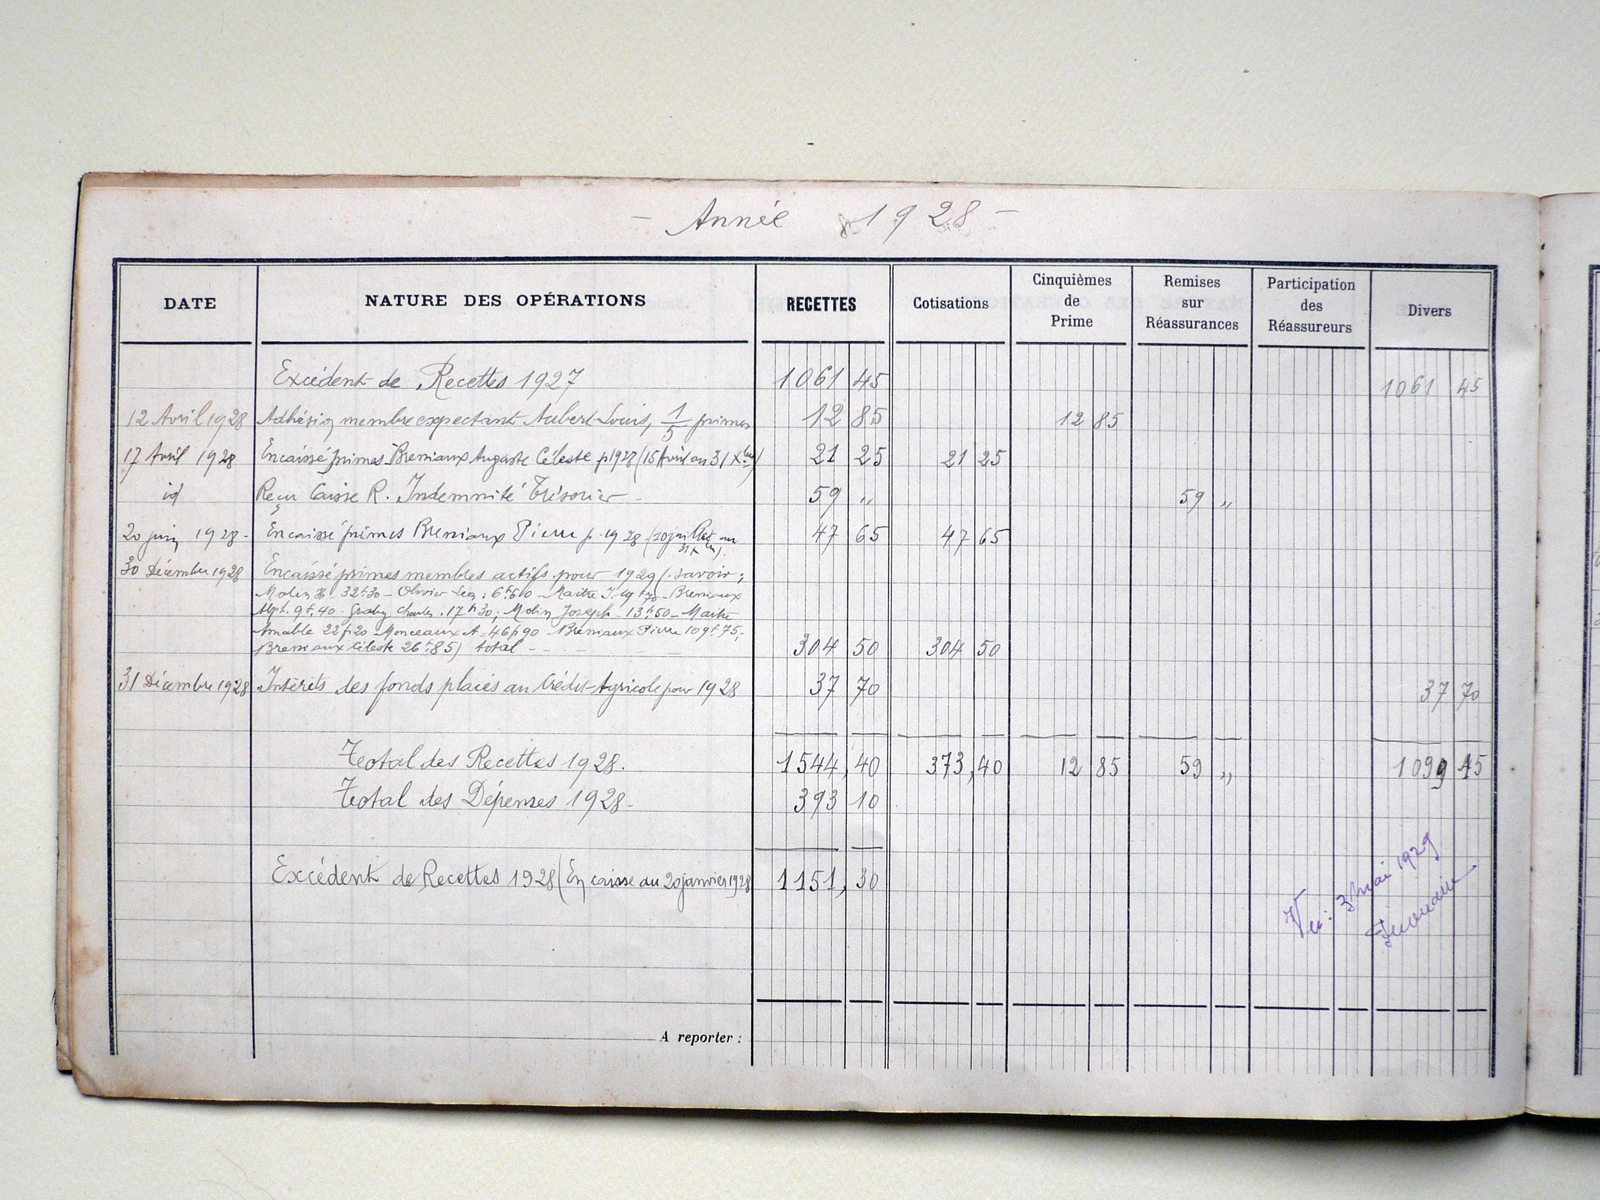 - Année 1928 -
DATE NATURE DES OPÉRATIONS RECETTES Cotisations Cinquièmes de Prime Remises sur Réassurances Participation des Réassureurs Divers
Excédent de Recettes 1927 1061 45 1061 45
12 Avril 1928 Adhésion membre expectant Aubert Louis, 1/5 primes 12 85 12 85
17 Avril 1928 Encaissé primes Breniaux Auguste Céleste p. 1928 (15 Avril au 31 Xbre) 21 25 21 25
id Reçu Caisse R. Indemnité Trésorier - 59 „ 59 „
20 juin 1928 - Encaissé primes Breniaux Pierre p. 1928 (10 juillet au 31 Xbre). 47 65 47 65
30 Décembre 1928 Encaissé primes membres actifs pour 1929 (savoir :
Molin H 32f30 - Olivier Léon : 6f60 - Maitre J. 19f70 - Breniaux
Alph. 9f.40 - Graby Charles : 17f30 ; Molin Joseph - 13f50 - Maitre
Amable 22f20 - Monceaux A = 46f90 - Breniaux Pierre 109f.75,
Breniaux Céleste 26f85) total - - 304 50 304 50
31 Décembre 1928 Intérêts des fonds placés au Crédit Agricole pour 1928 37 70 37 70
Total des Recettes 1928. 1544,40 373,40 12 85 59 „ 1099 15
Total des Dépenses 1928 - 393 10
Excédent de Recettes 1928 (En caisse au 20 janvier 1928 1151, 30
Vu : 3 mai 1929
A reporter :